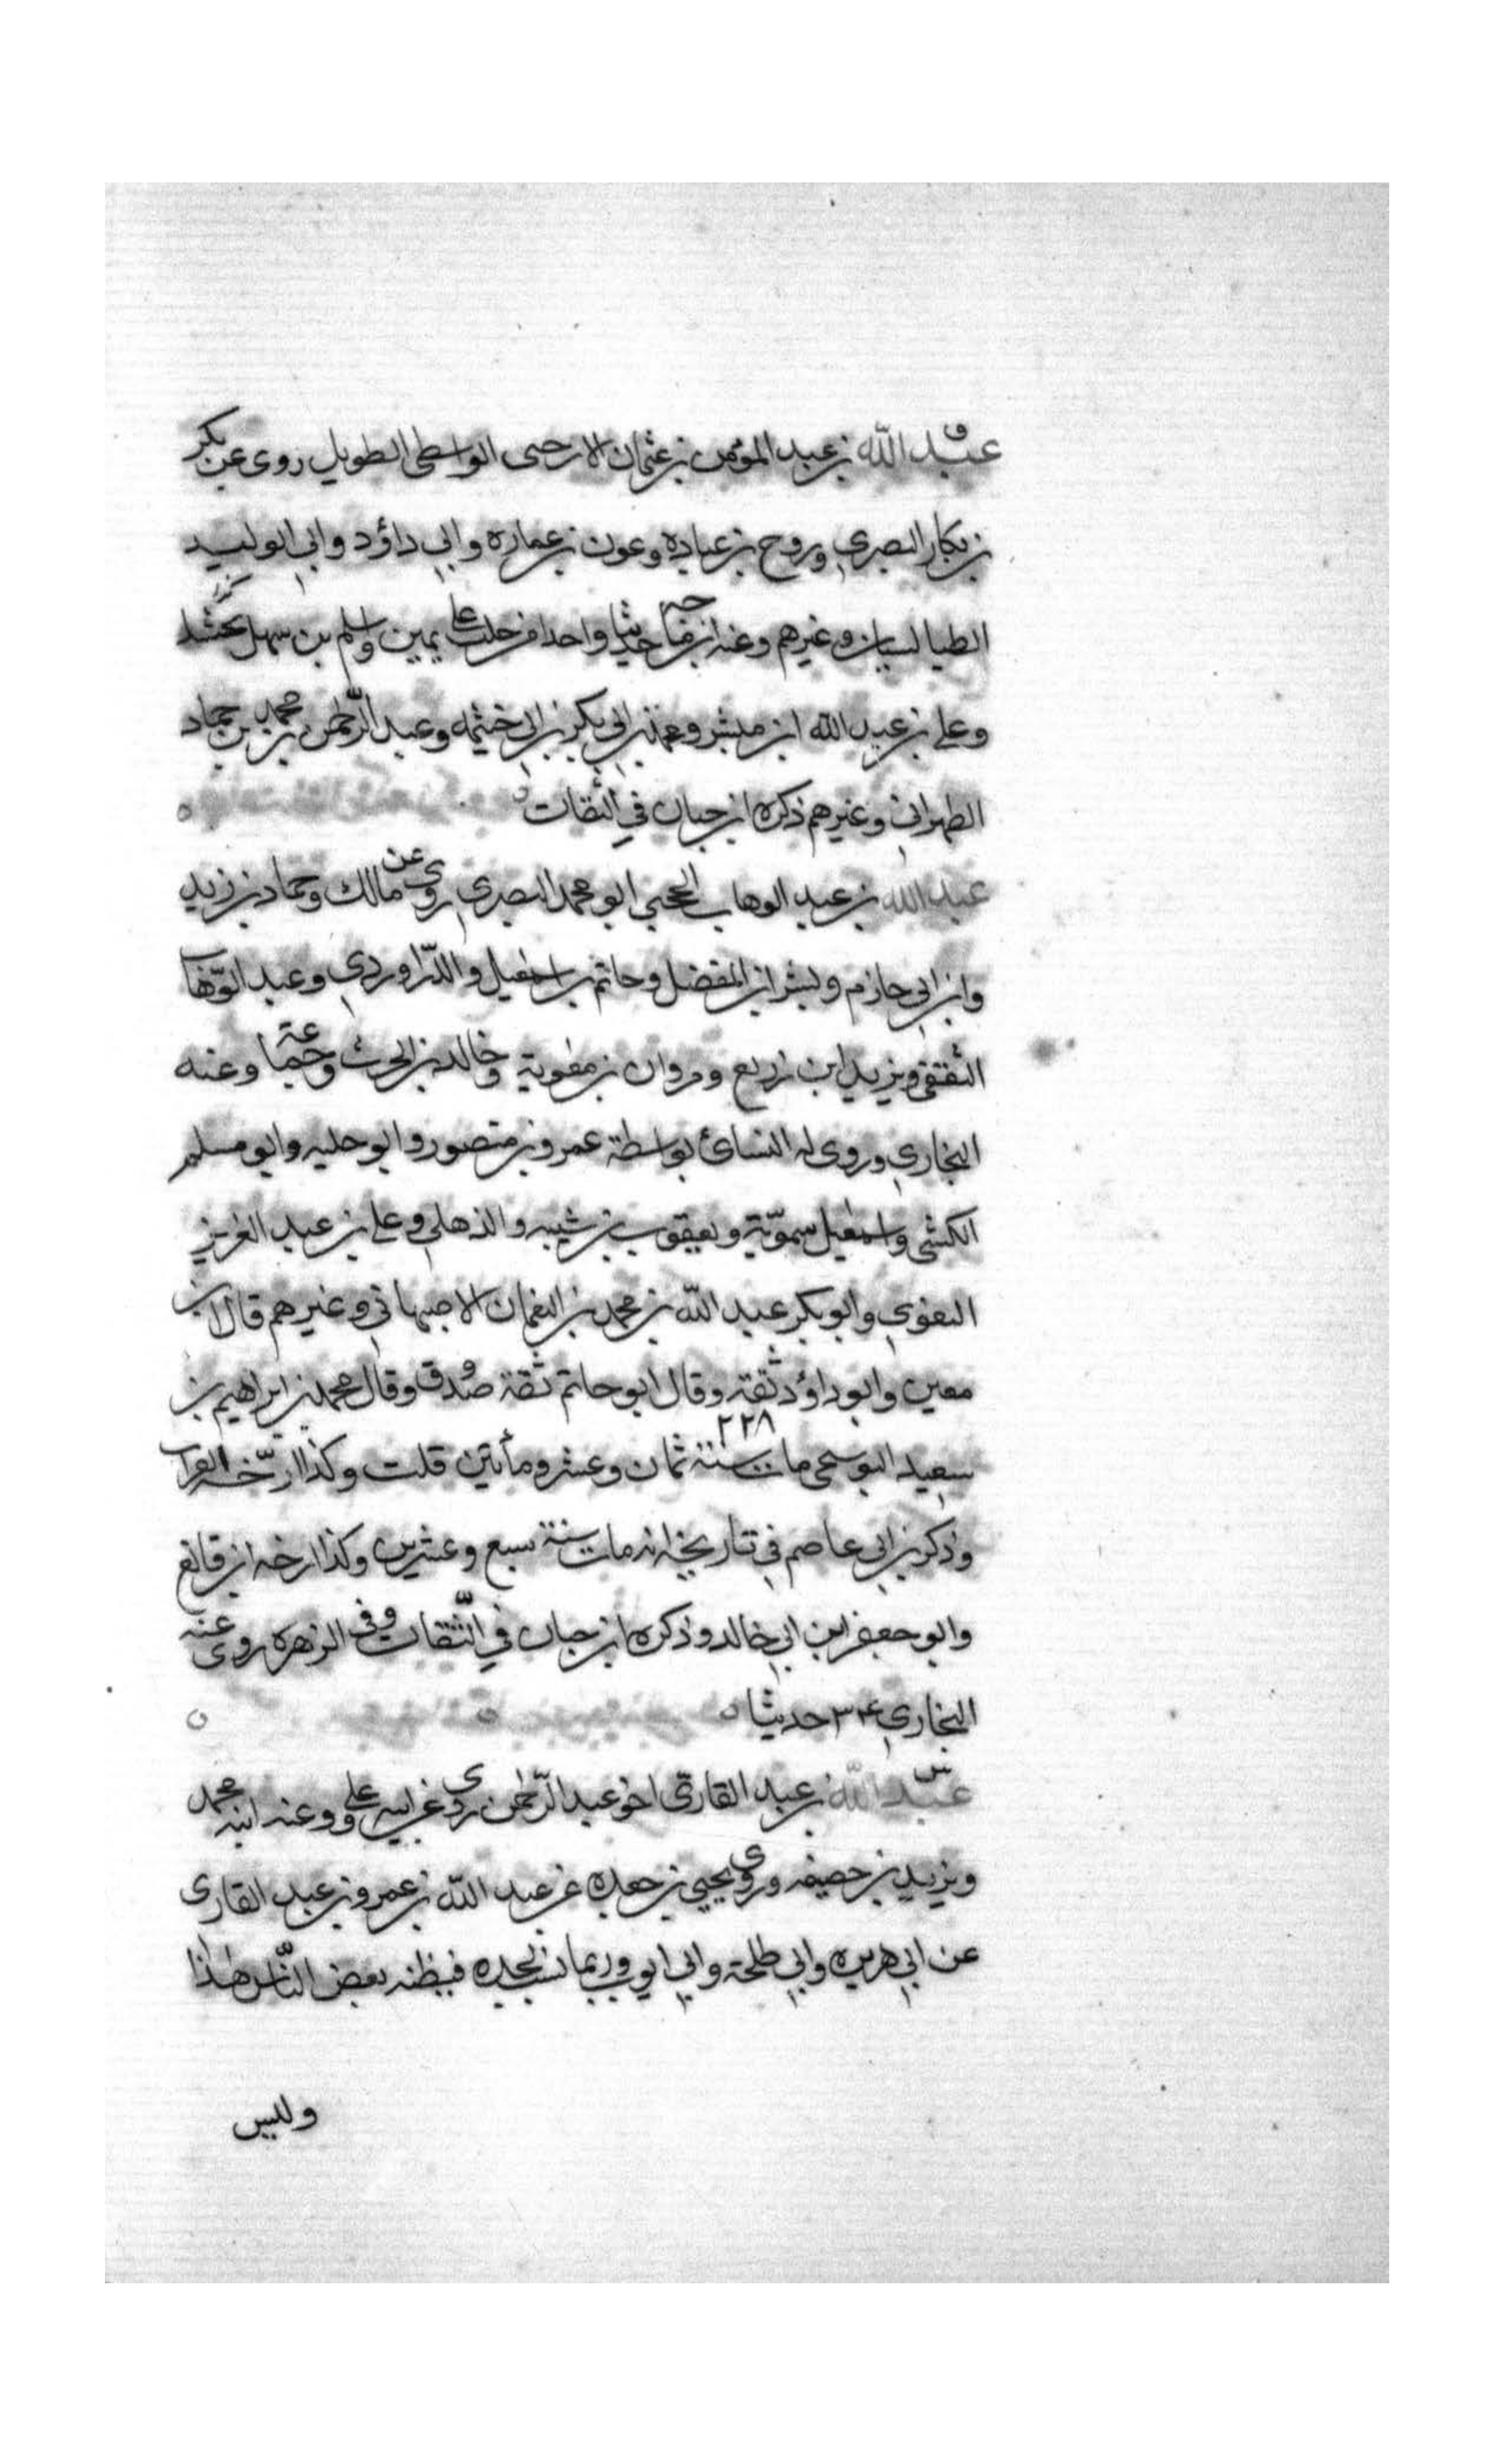 ق
عبد الله بن عبد المؤمن بن عثمان الارحبى الواسطى الطويل روى عن بكر
بن بكار البصري وروح بن عبادة وعون بن عمارة وابي داؤد وابي الوليد
الطيالسيان وغيرهم وعنه ابن ماجه حديثا واحدا من حلف على يمين واسلم بن سهل بحشل
وعلي بن عبد الله ابن مبشر ومحمد بن ابي بكر بن ابي خثيمه وعبد الرحمن بن محمد بن حماد
الطهراني وغيرهم ذكره ابن حبان في الثقات
عبد الله بن عبد الوهاب الحجبي ابو محمد البصري روى عن مالك وحماد بن زيد
وابن ابي حازم وبشر ابن المفضل وحاتم بن اسمعيل والدّراوردي وعبد الوّهاب
الثقفي ويزيد ابن زريع ومروان بن معوية وخالد بن الحرث وجماعة وعنه
البخاري وروى له النسائ بواسطة عمرو بن منصور وابو حليه وابو مسلم
الكشى واسمعيل سموّية ويعقوب بن شيبه والذهلي وعلي بن عبد العزيز
البغوي وابو بكر عبد الله بن محمد بن النعمان الاصبهاني وغيرهم قال ابن
معين وابو داؤد ثقة وقال ابو حاتم ثقة صدوق وقال محمد بن ابراهيم بن
سعيد البوسحى مات سنة ٢٢٨ ثمان وعشر ومأتين قلت وكذا ارّخه القراب
وذكر بن ابي عاصم في تاريخه انه مات سنة سبع وعشرين وكذا ارخه ابن قانع
وابو جعفر ابن ابي خالد وذكره ابن حبان في الثّقات وفى الزهرة روى عنه
البخاري ٣٤ حديثا
س
عبد الله بن عبد القارّى اخو عبد الرّحمن روى عن ابيه وعلي وعنه ابنه محمد
ويزيد بن خصيفه وروى يحيى بن جعده عن عبد الله بن عمرو بن عبد القارى
عن ابي هريره وابي طلحة وابي ايوب وربما نسب لجده فيظنه بعض النّاس هذا
وليس